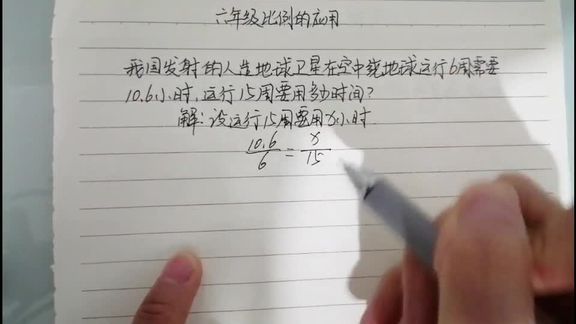 六年级比例的应用
我国发射的人造地球卫星在空中绕地球运行6周需要
10.6小时,运行15周要用多少时间?
解:设运行15周要用x小时.
10.6/6=x/15